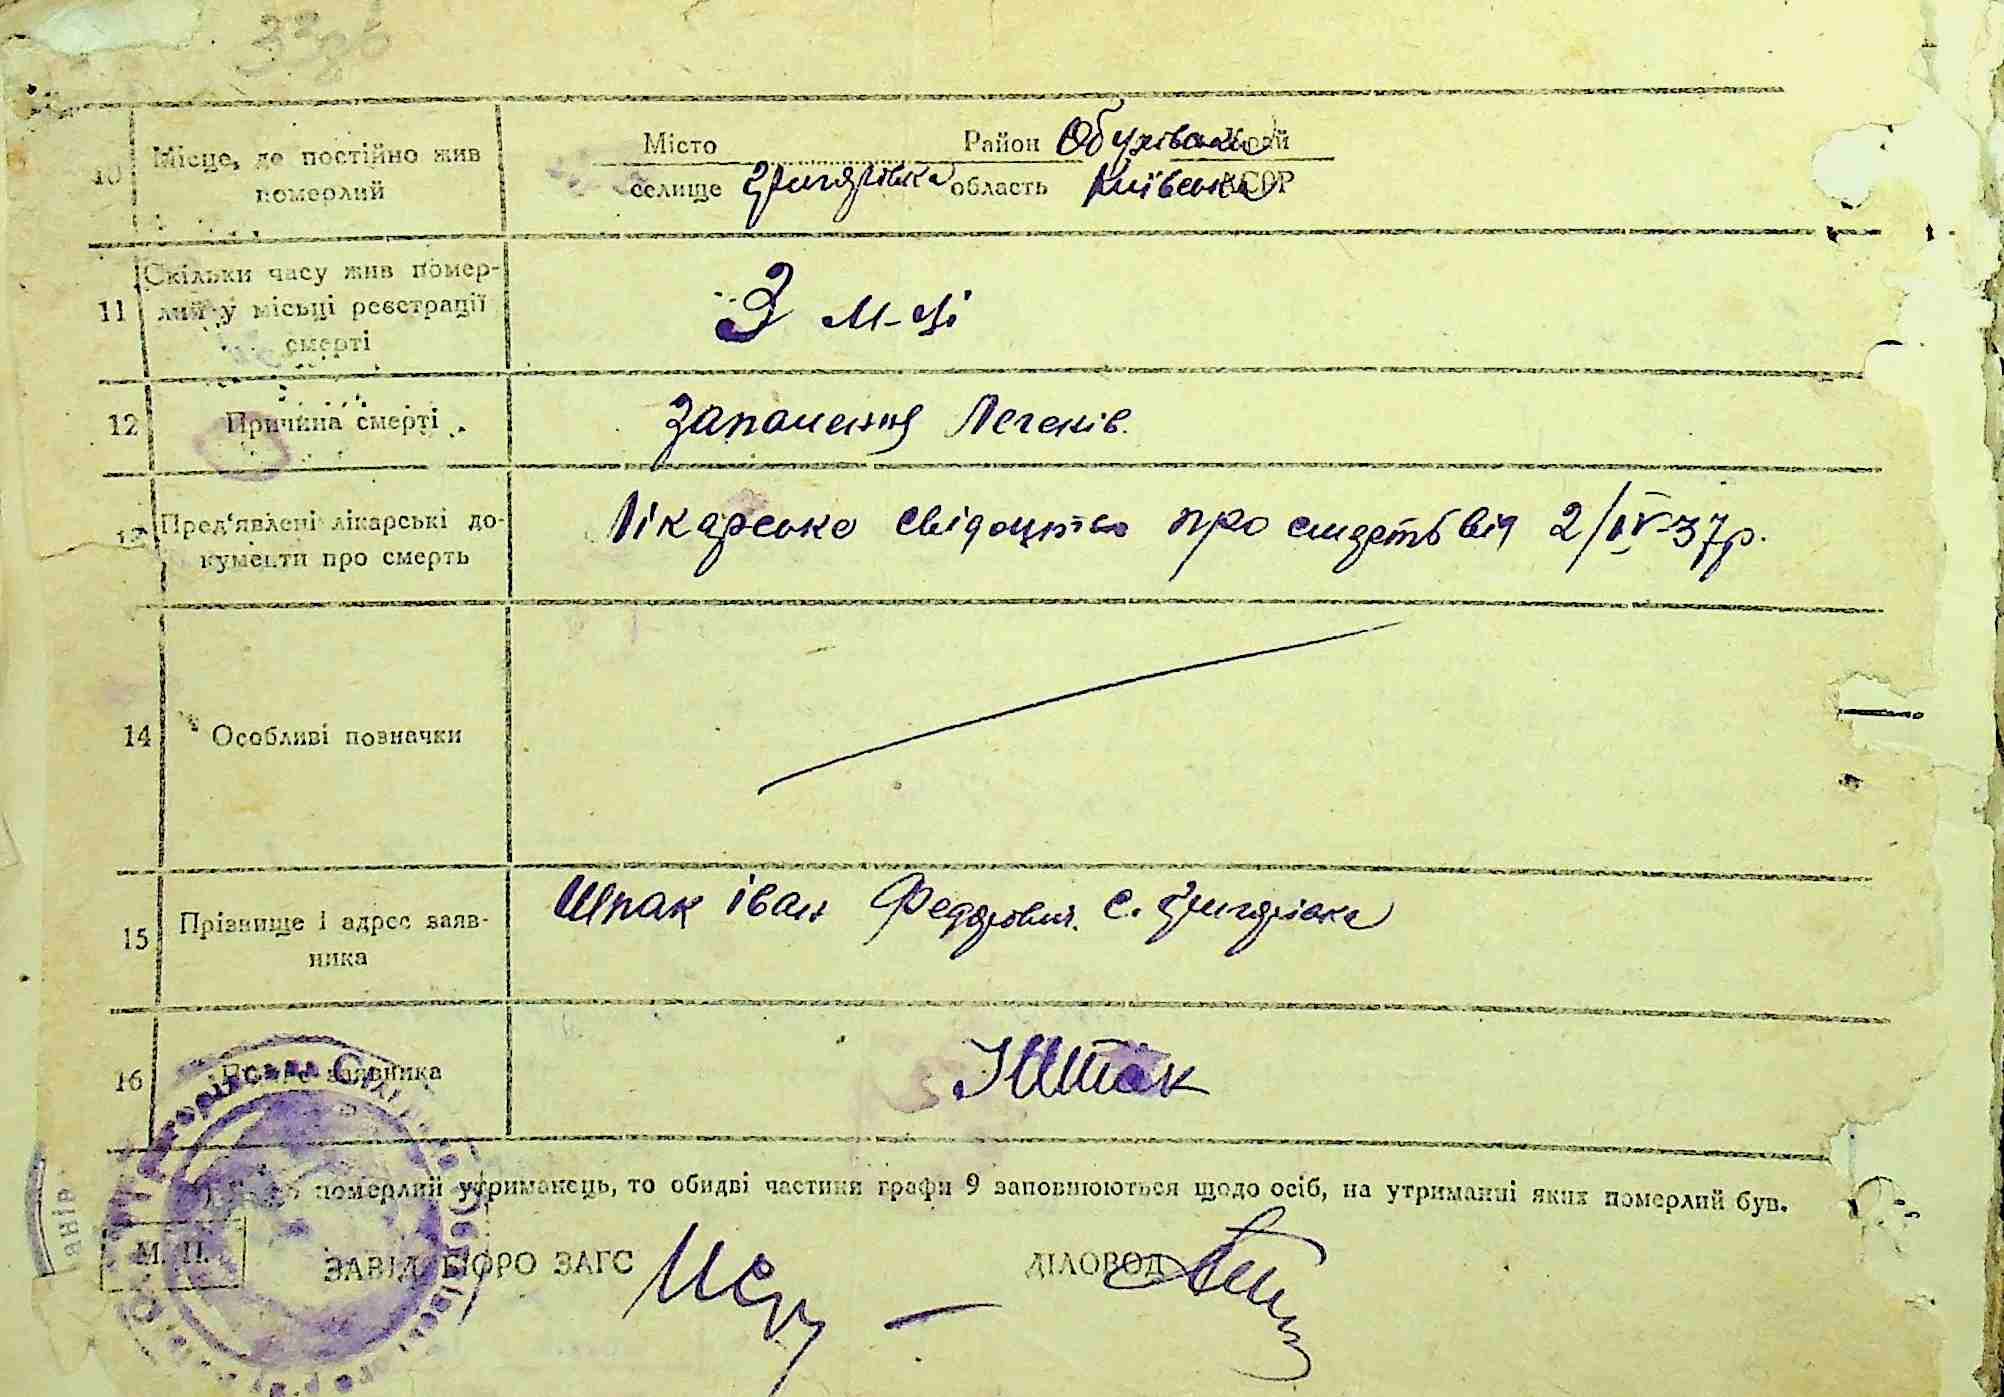 33
Місто Район Обухівськ Край
10 Місце, де постійно жив
померлий
селище Григорівка область Київська АСРР
Скільки часу жив помер-
11 лий у місці реєстрації
смерті
3 м-ці
12 Причина смерті
Запалення Легенів.
13 Пред'явлені лікарські до-
кументи про смерть
Лікарське свідоцтво про смерть від 2/IV-37р.
14 Особливі позначки
15 Прізвище і адрес заяв-
ника
Шпак Іван Федорович. с. Григорівка
16 Підпис заявника
ІШпак
померлий утриманець, то обидві частини графи 9 заповнюються щодо осіб, на утриманні яких померлий був.
М. П.
ЗАВІД. БЮРО ЗАГС
ДІЛОВОД